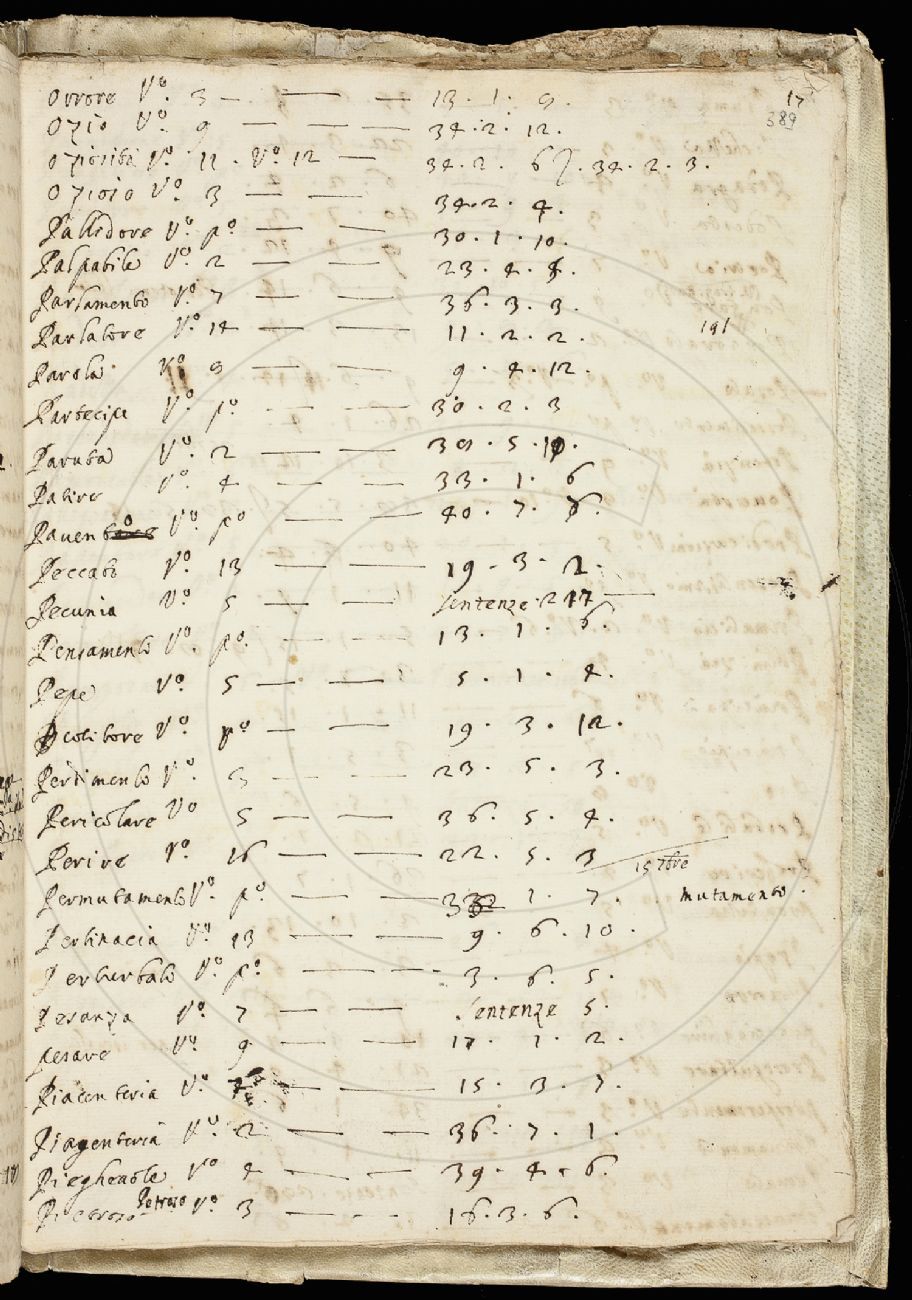 17
389
Orrore Vº. 3 — — — 13 · 1 · 9.
Ozio Vº. 9 — — — 34 · 2 · 12.
Oziosità Vº. 11 · Vº. 12 — 34 · 2 · 6 }. 34 · 2 · 3.
Ozioso Vº. 3 — — 34 · 2 · 4.
Pallidore Vº. pº — — 30 · 1 · 10.
Palpabile Vº. 2 — — 23 · 4 · 4.
Parlamento Vº. 7 — — 36 · 3 · 3.
Parlatore Vº. 14 — — 11 · 2 · 2. 191
Parola Vº. 9 — — 9 · 4 · 12.
Partecipe Vº. pº — — 30 · 2 · 3
Paruta Vº. 2 — — 39 · 5 · 10.
Patire Vº. 4 — — 33 · 1 · 6
Pavento Vº. pº — — 40 · 7 · 6.
Peccato Vº. 13 — — 19 · 3 · 2.
Pecunia Vº. 5 — — Sentenze · 217 —
Pensamento Vº. pº. — — 13 · 1 · 6.
Pepe Vº. 5 — — 5 · 1 · 4.
Vº. pº — — 19 · 3 · 12.
Perimento Vº. 3 — — 23 · 5 · 3.
Pericolare Vº 5 — — 36 · 5 · 4.
Perire Vº. 16 — — 22 · 5 · 3 15 7bre
Permutamento Vº. pº. — — 33 1 · 7. mutamento.
Pertinacia Vº. 13 — — 9 · 6 · 10.
Perturbato Vº. pº. — — 3 · 6 · 5.
Pesanza Vº. 7 — — Sentenze 5.
pesare Vº. 9 — — 17 · 1 · 2.
Piacenteria Vº. — — 15 · 3 · 7.
Piagenteria Vº. 2 — — 36 · 7 · 1.
Pieghevole Vº 4 — — 39 · 4 · 6.
Petroso Vº 3 — — 16 · 3 · 6.